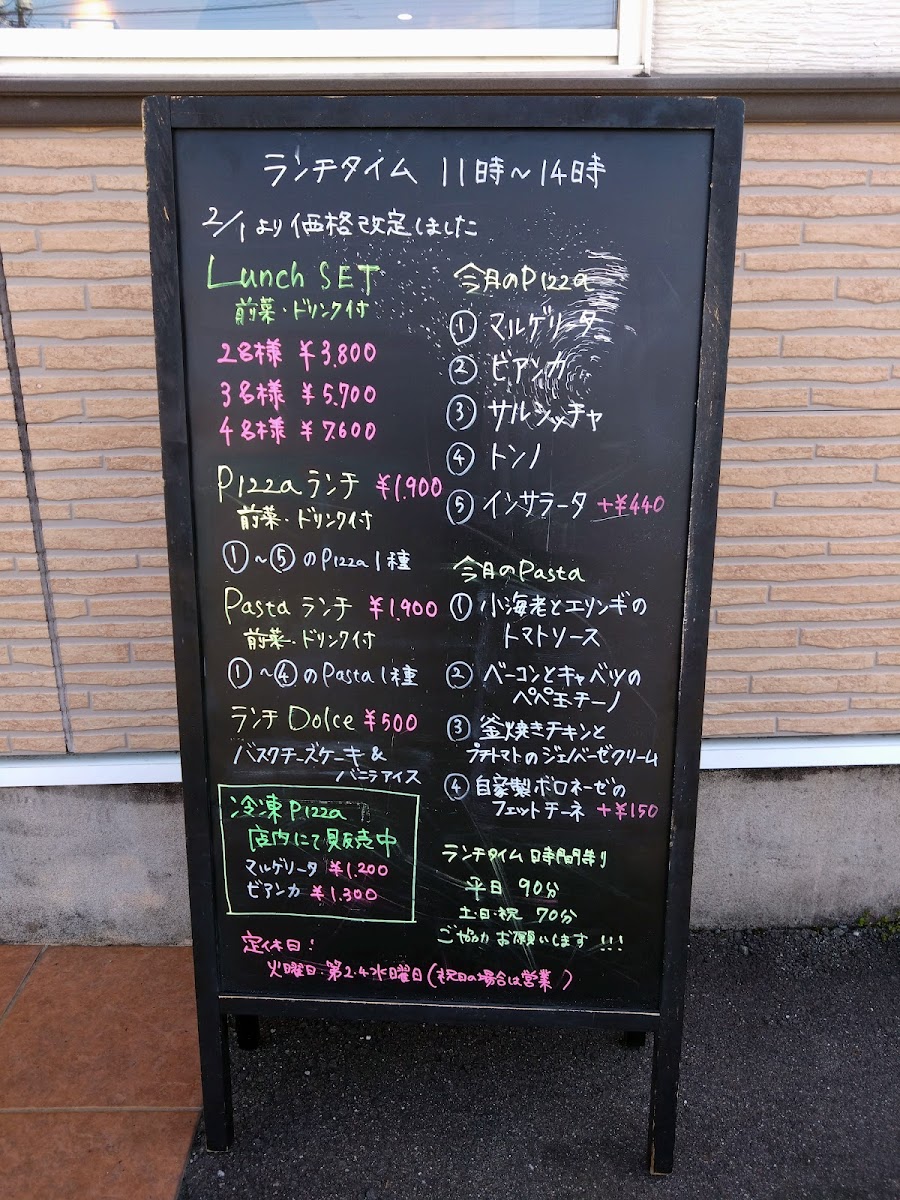 ランチタイム 11時〜14時
2/1より価格改定しました
Lunch SET
前菜・ドリンク付
2名様 ¥3,800
3名様 ¥5,700
4名様 ¥7,600
Pizza ランチ ¥1,900
前菜・ドリンク付
①〜⑤のPizza 1種
Pasta ランチ ¥1,900
前菜・ドリンク付
①〜④のPasta 1種
ランチ Dolce ¥500
バスクチーズケーキ &
バニラアイス
冷凍 Pizza
店内にて販売中
マルゲリータ ¥1,200
ビアンカ ¥1,300
今月のPizza
① マルゲリータ
② ビアンカ
③ サルシッチャ
④ トンノ
⑤ インサラータ +¥440
今月のPasta
① 小海老とエリンギの
トマトソース
② ベーコンとキャベツの
ペペ玉チーノ
③ 釜焼きチキンと
プチトマトのジェノベーゼクリーム
④ 自家製ボロネーゼの
フェットチーネ +¥150
ランチタイム 時間制り
平日 90分
土・日・祝 70分
ご協力お願いします!!!
定休日!
火曜日・第2・4水曜日(祝日の場合は営業)